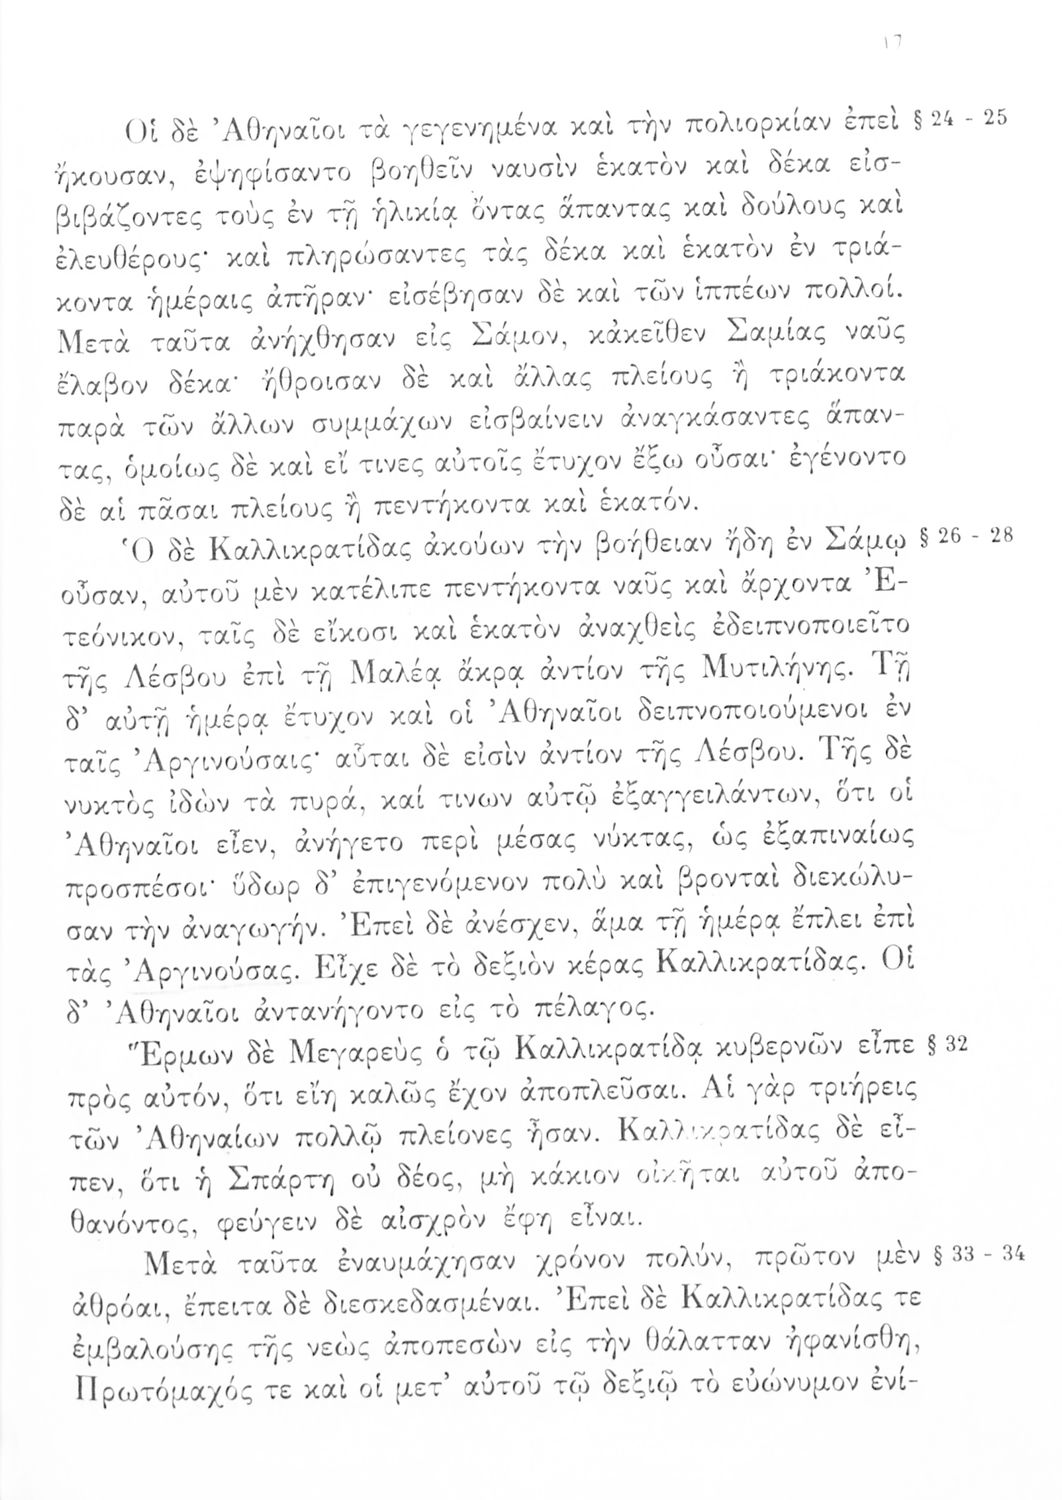 17
Οἱ δὲ Ἀθηναῖοι τὰ γεγενημένα καὶ τὴν πολιορκίαν ἐπεὶ § 24 - 25
ἤκουσαν, ἐψηφίσαντο βοηθεῖν ναυσὶν ἑκατὸν καὶ δέκα εἰσ-
βιβάζοντες τοὺς ἐν τῇ ἡλικίᾳ ὄντας ἅπαντας καὶ δούλους καὶ
ἐλευθέρους· καὶ πληρώσαντες τὰς δέκα καὶ ἑκατὸν ἐν τριά-
κοντα ἡμέραις ἀπῆραν· εἰσέβησαν δὲ καὶ τῶν ἱππέων πολλοί.
Μετὰ ταῦτα ἀνήχθησαν εἰς Σάμον, κἀκεῖθεν Σαμίας ναῦς
ἔλαβον δέκα· ἤθροισαν δὲ καὶ ἄλλας πλείους ἢ τριάκοντα
παρὰ τῶν ἄλλων συμμάχων εἰσβαίνειν ἀναγκάσαντες ἅπαν-
τας, ὁμοίως δὲ καὶ εἴ τινες αὐτοῖς ἔτυχον ἔξω οὖσαι· ἐγένοντο
δὲ αἱ πᾶσαι πλείους ἢ πεντήκοντα καὶ ἑκατόν.
Ὁ δὲ Καλλικρατίδας ἀκούων τὴν βοήθειαν ἤδη ἐν Σάμῳ § 26 - 28
οὖσαν, αὐτοῦ μὲν κατέλιπε πεντήκοντα ναῦς καὶ ἄρχοντα Ἐ-
τεόνικον, ταῖς δὲ εἴκοσι καὶ ἑκατὸν ἀναχθεὶς ἐδειπνοποιεῖτο
τῆς Λέσβου ἐπὶ τῇ Μαλέᾳ ἄκρᾳ ἀντίον τῆς Μυτιλήνης. Τῇ
δ’ αὐτῇ ἡμέρᾳ ἔτυχον καὶ οἱ Ἀθηναῖοι δειπνοποιούμενοι ἐν
ταῖς Ἀργινούσαις· αὗται δὲ εἰσὶν ἀντίον τῆς Λέσβου. Τῆς δὲ
νυκτὸς ἰδὼν τὰ πυρά, καί τινων αὐτῷ ἐξαγγειλάντων, ὅτι οἱ
Ἀθηναῖοι εἶεν, ἀνήγετο περὶ μέσας νύκτας, ὡς ἐξαπιναίως
προσπέσοι· ὕδωρ δ’ ἐπιγενόμενον πολὺ καὶ βρονταὶ διεκώλυ-
σαν τὴν ἀναγωγήν. Ἐπεὶ δὲ ἀνέσχεν, ἅμα τῇ ἡμέρᾳ ἔπλει ἐπὶ
τὰς Ἀργινούσας. Εἶχε δὲ τὸ δεξιὸν κέρας Καλλικρατίδας. Οἱ
δ’ Ἀθηναῖοι ἀντανήγοντο εἰς τὸ πέλαγος.
Ἕρμων δὲ Μεγαρεὺς ὁ τῷ Καλλικρατίδᾳ κυβερνῶν εἶπε § 32
πρὸς αὐτόν, ὅτι εἴη καλῶς ἔχον ἀποπλεῦσαι. Αἱ γὰρ τριήρεις
τῶν Ἀθηναίων πολλῷ πλείονες ἦσαν. Καλλικρατίδας δὲ εἶ-
πεν, ὅτι ἡ Σπάρτη οὐ δέος, μὴ κάκιον οἰκῆται αὐτοῦ ἀπο-
θανόντος, φεύγειν δὲ αἰσχρὸν ἔφη εἶναι.
Μετὰ ταῦτα ἐναυμάχησαν χρόνον πολύν, πρῶτον μὲν § 33 - 34
ἀθρόαι, ἔπειτα δὲ διεσκεδασμέναι. Ἐπεὶ δὲ Καλλικρατίδας τε
ἐμβαλούσης τῆς νεὼς ἀποπεσὼν εἰς τὴν θάλατταν ἠφανίσθη,
Πρωτόμαχός τε καὶ οἱ μετ’ αὐτοῦ τῷ δεξιῷ τὸ εὐώνυμον ἐνί-